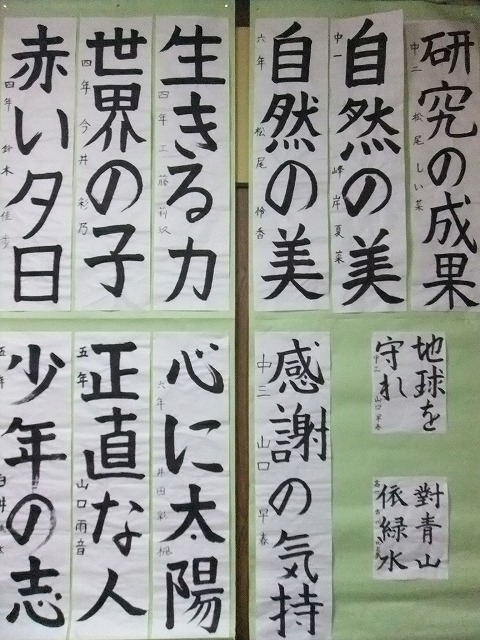 研究の成果
中二 松尾 しい菜
自然の美
中一 峰岸夏菜
自然の美
六年 松尾 怜香
生きる力
四年 工藤
世界の子
四年 今井 彩乃
赤い夕日
四年 鈴木 佳
地球を
守れ
中三 山口早春
對青山
依緑水
感謝の気持
中三 山口 早春
心に太陽
六年 井田 彩楓
正直な人
五年 山口雨音
少年の志
五年 臼井